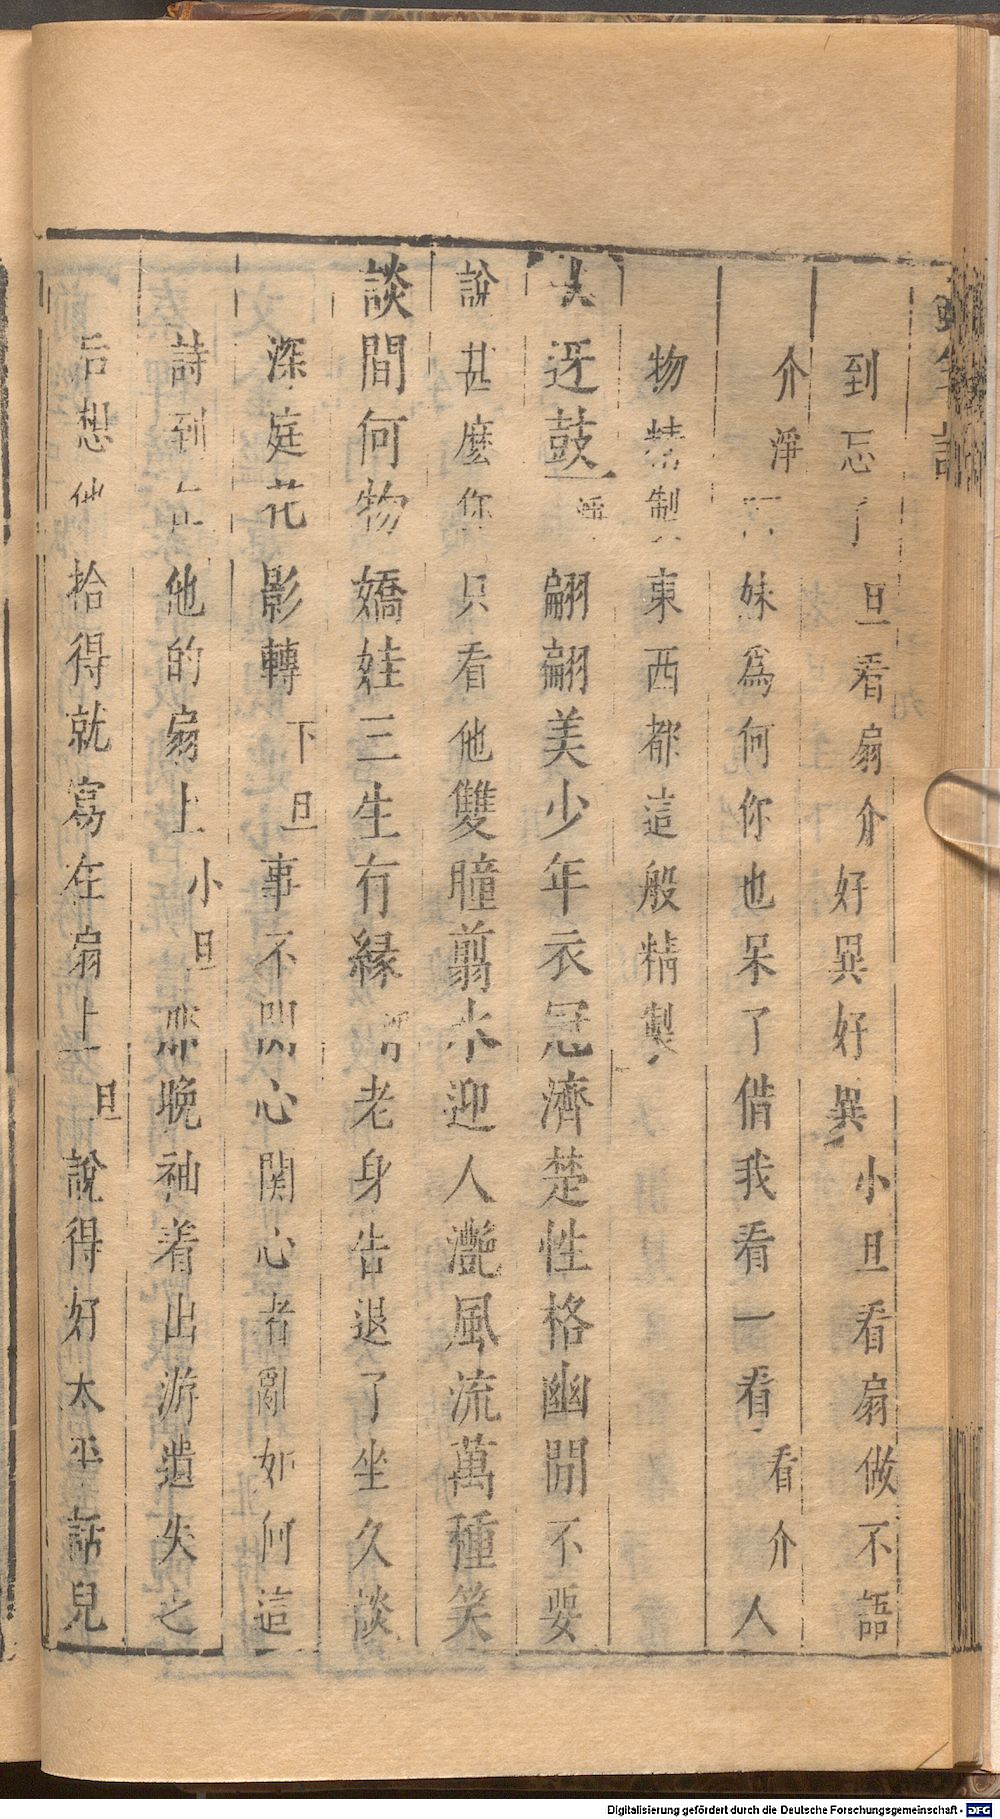 到忘了旦看扇介好異好異小旦看扇做不語
介淨妹爲何你也呆了借我看一看看介人
物精製東西都這般精製
大迓鼓翩翩美少年衣冠濟楚性格幽閒不要
說甚麼你只看他雙瞳翦水迎人灔風流萬種笑
談間何物嬌娃三生有緣老身告退了坐久談
深庭花影轉下旦事不関心関心者亂如何這
詩到在他的扇上小旦那晚袖着出游遺失之
后想他拾得就寫在扇上旦說得好太平話兒
Digitalisierung gefördert durch die Deutsche Forschungsgemeinschaft - DFG